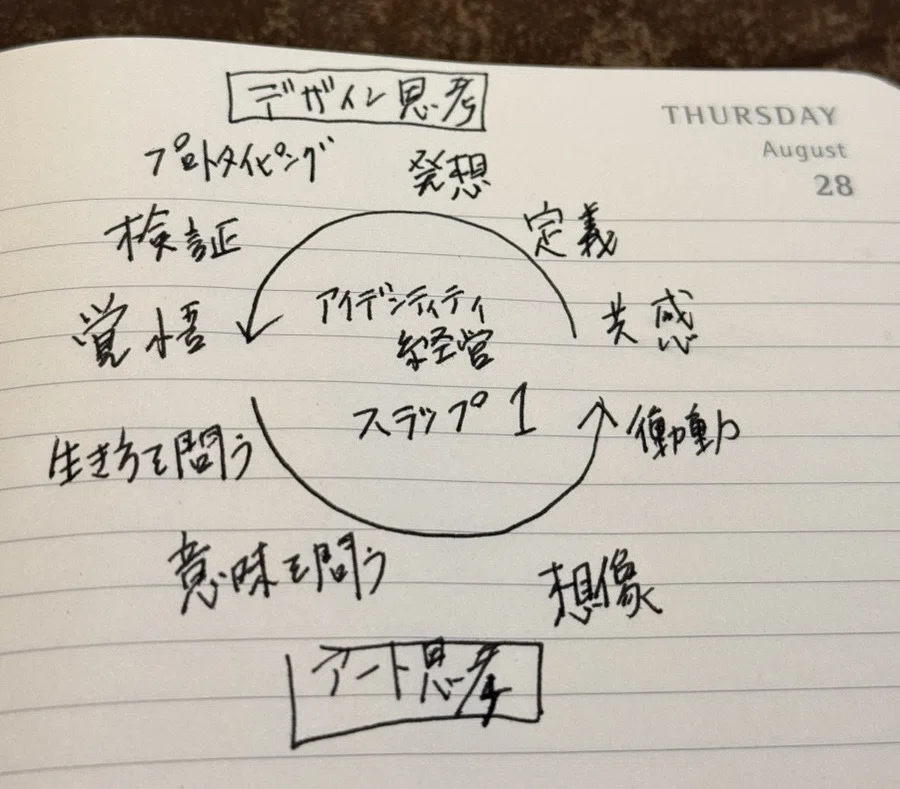 デザイン思考
THURSDAY
August
28
プロトタイピング
発想
検証
定義
覚悟
アイデンティティ
経営
ステップ1
共感
生き方を問う
衝動
意味を問う
想像
アート思考